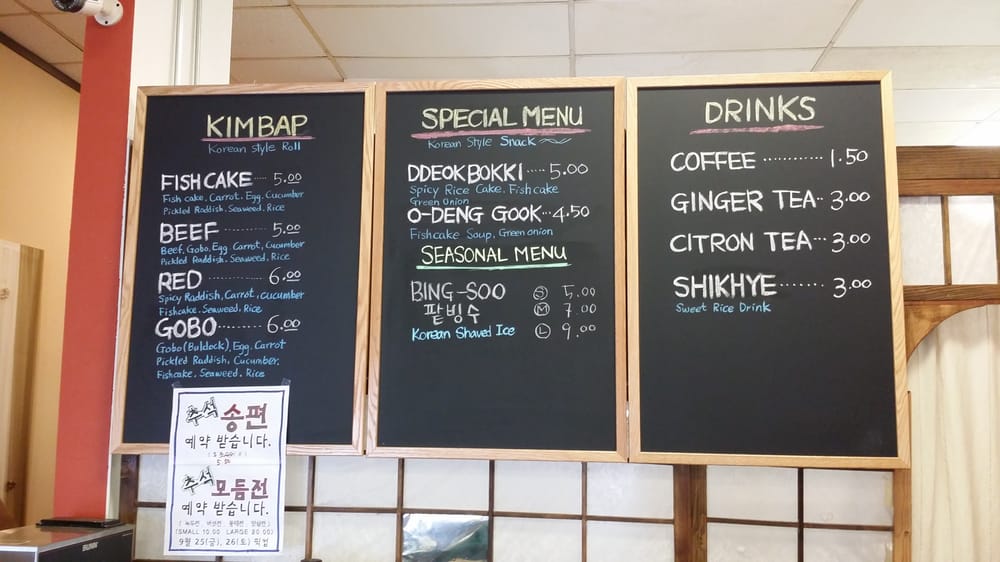 KIMBAP
Korean style Roll
FISH CAKE ···· 5.00
Fish cake, Carrot, Egg, Cucumber
Pickled Raddish, Seaweed, Rice
BEEF ·········· 5.00
Beef, Gobo, Egg Carrot, Cucumber
Pickled Raddish, Seaweed, Rice
RED ············ 6.00
Spicy Raddish, Carrot, cucumber
Fishcake, Seaweed, Rice
GOBO ········· 6.00
Gobo (Buldock), Egg, Carrot
Pickled Raddish, Cucumber,
Fishcake, Seaweed, Rice
추석 송편
예약 받습니다.
추석 모듬전
예약 받습니다.
(SMALL 10.00 LARGE
9월 25(금), 26(토) 픽업
SPECIAL MENU
Korean Style Snack
DDEOKBOKKI ···· 5.00
Spicy Rice Cake, Fishcake
Green Onion
O-DENG GOOK ··· 4.50
Fishcake Soup, Green onion
SEASONAL MENU
BING-SOO Ⓢ 5.00
팥빙수 Ⓜ 7.00
Korean Shaved Ice Ⓛ 9.00
DRINKS
COFFEE ··········· 1.50
GINGER TEA ·· 3.00
CITRON TEA ··· 3.00
SHIKHYE ······· 3.00
Sweet Rice Drink
BUNN